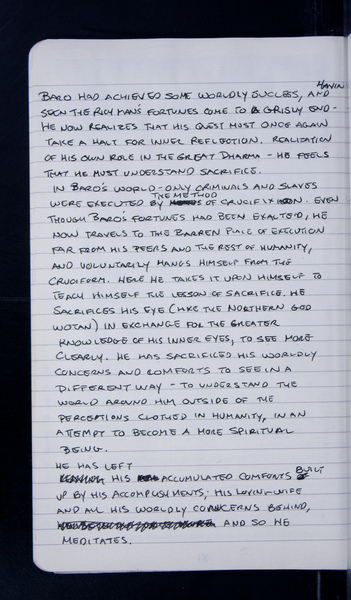 BARO HAD ACHIEVED SOME WORLDLY SUCCESS, AND HAVING
SEEN THE RICH MAN'S FORTUNES COME TO A GRISLY END -
HE NOW REALIZES THAT HIS QUEST MUST ONCE AGAIN
TAKE A HALT FOR INNER REFLECTION. REALIZATION
OF HIS OWN ROLE IN THE GREAT DHARMA - HE FEELS
THAT HE MUST UNDERSTAND SACRIFICE.
IN BARO'S WORLD - ONLY CRIMINALS AND SLAVES
WERE EXECUTED BY THE METHOD OF CRUCIFIXION. EVEN
THOUGH BARO'S FORTUNES HAD BEEN EXALTED, HE
NOW TRAVELS TO THE BARREN PLACE OF EXECUTION
FAR FROM HIS PEERS AND THE REST OF HUMANITY,
AND VOLUNTARILY HANGS HIMSELF FROM THE
CRUCIFORM. HERE HE TAKES IT UPON HIMSELF TO
TEACH HIMSELF THE LESSON OF SACRIFICE. HE
SACRIFICES HIS EYE (LIKE THE NORTHERN GOD
WOTAN) IN EXCHANGE FOR THE GREATER
KNOWLEDGE OF HIS INNER EYES, TO SEE MORE
CLEARLY. HE HAS SACRIFICED HIS WORLDLY
CONCERNS AND COMFORTS TO SEE IN A
DIFFERENT WAY - TO UNDERSTAND THE
WORLD AROUND HIM OUTSIDE OF THE
PERCEPTIONS CLOTHED IN HUMANITY, IN AN
ATTEMPT TO BECOME A MORE SPIRITUAL
BEING.
HE HAS LEFT
HIS ACCUMULATED COMFORTS BUILT
UP BY HIS ACCOMPLISHMENTS; HIS LOVING-WIFE
AND ALL HIS WORLDLY CONCERNS BEHIND,
AND SO HE
MEDITATES.